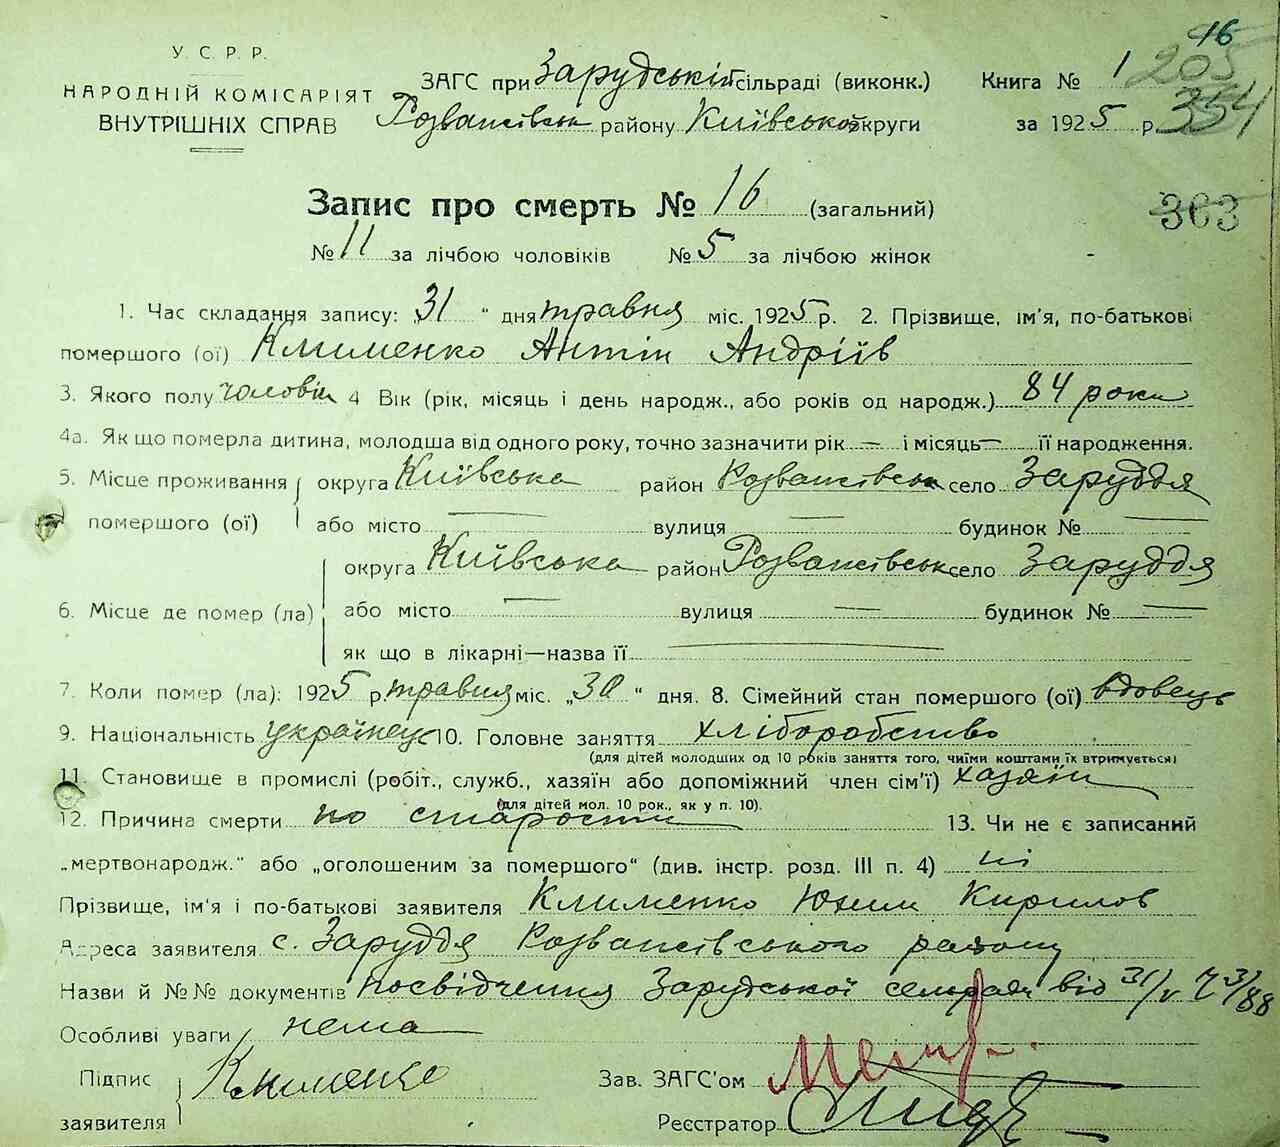 16
У. С. Р. Р.
НАРОДНІЙ КОМІСАРІЯТ
ВНУТРІШНІХ СПРАВ
ЗАГС при Зарудській сільраді (виконк.)
Розважівськ району Київської округи
Книга № 1 205
за 1925 р. 354
Запис про смерть № 16 (загальний)
363
№ 11 за лічбою чоловіків № 5 за лічбою жінок
1. Час складання запису: „31 “ дня травня міс. 1925 р. 2. Прізвище, ім'я, по-батькові
помершого (ої) Клименко Антін Андріїв
3. Якого полу чоловік 4 Вік (рік, місяць і день народж., або років од народж.) 84 роки
4а. Як що померла дитина, молодша від одного року, точно зазначити рік — і місяць — її народження.
5. Місце проживання округа Київська район Розважівськ село Заруддя
помершого (ої) або місто — вулиця — будинок № —
округа Київська район Розважівськ село Заруддя
6. Місце де помер (ла) або місто — вулиця — будинок № —
як що в лікарні—назва її —
7. Коли помер (ла): 1925 р. травня міс. „30 “ дня. 8. Сімейний стан помершого (ої) вдовець
9. Національність українець 10. Головне заняття хліборобство
(для дітей молодших од 10 років заняття того, чиїми коштами їх втримується)
11. Становище в промислі (робіт., служб., хазяїн або допоміжний член сім'ї) хазяїн
(для дітей мол. 10 рок., як у п. 10).
12. Причина смерти по старости 13. Чи не є записаний
„мертвонародж.“ або „оголошеним за помершого“ (див. інстр. розд. III п. 4) ні
Прізвище, ім'я і по-батькові заявителя Клименко Юхим Кирилов
Адреса заявителя с. Заруддя Розважівського району
Назви й №№ документів Посвідчення Зарудської сельради від 31/V
Особливі уваги нема
Підпис Клименко Зав. ЗАГС'ом
заявителя Реєстратор